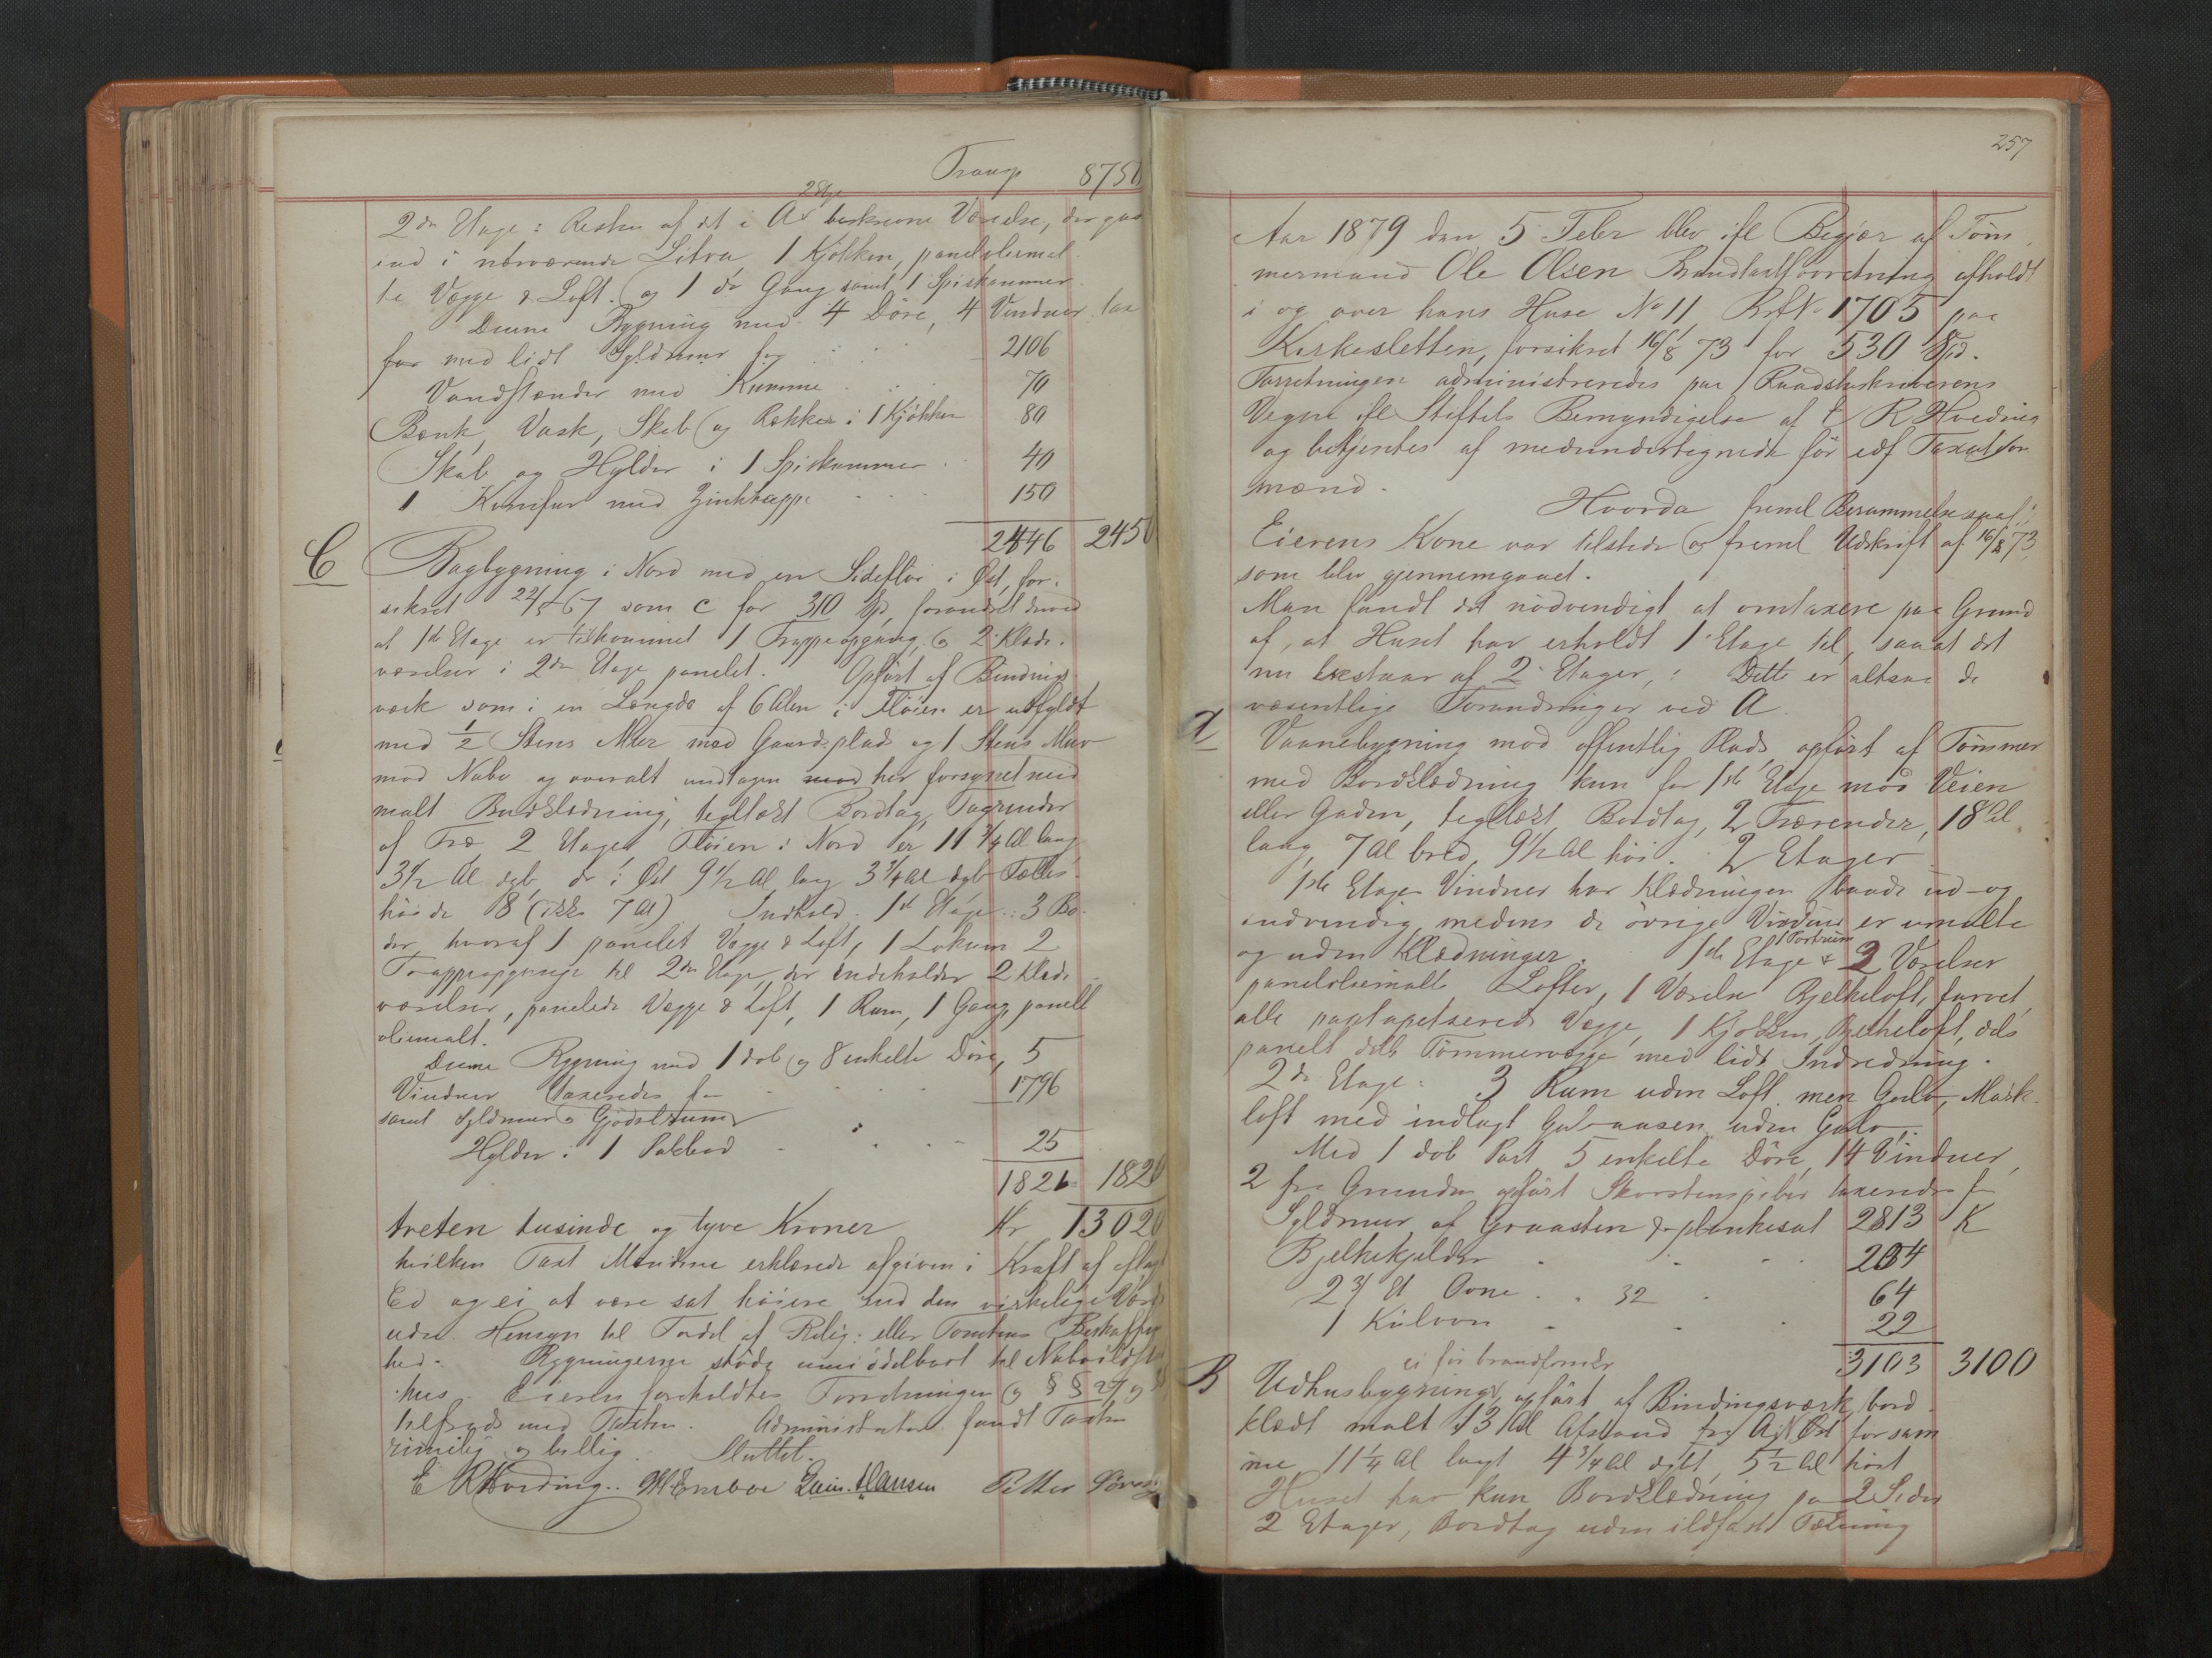 Transp 8750
2 Etge
2den Etage: Resten af det i A beskrevne Værelse, der gaar
ind i nærværende Litra, 1 Kjökken, paneloliemal-
te Vægge & Loft. og 1 do Gang samt 1 Spiskammer.
Denne Bygning med 4 Döre, 4 Vinduer tax
for med lidt Syldmur for 2106
Vandstænder med Kumme 70
Bænk, Vask, Skab og Rækker i 1 Kjökken 80
Skab og Hylder i 1 Spiskammer 40
1 Komfur med Zinkkappe 150
2446 2450
C Bagbygning i Nord med en Sideflöi i Öst, for-
sikret 22/5 67 som C for 310 Spd, forandret derved
at 1ste Etage er tilkommet 1 Trappeopgang, og 2 Klæde-
værelser i 2den Etage panelet. Opfört af Bindings
værk som i en Længde af 6 Alen i Flöien er udfyldt
med ½ Stens Mur mod Gaardsplads og 1 Stens Mur
mod Nabo og overalt undtagen mod her forsynet med
malt Bordklædning, tegltækt Bordtag, Tagrender
af Træ 2 Etager, Flöien i Nord er 11 ¾ Al lang
3½ Al dyb, do i Öst 9½ Al lang 3¾ Al dyb Fælles
höide 8 (ikke 7 Al) Indhold. 1st Etage: 3 Bo-
der, hvoraf 1 panelet Vægge & Loft, 1 Lokum 2
Trappeopgange til 2den Etage, der indeholder 2 Klæde
værelser, panelede Vægge & Loft, 1 Rum, 1 Gang, panelt
oliemalt.
Denne Bygning med 1 dob og 8 enkelte Döre, 5
Vinduer taxeredes for 1796
samt Syldmur & Gjödselrum
Hylder i 1 Pakbod 25
1821 1820
tretten tusinde og tyve Kroner Kr 13020
hvilken Taxt Mændene erklærede afgiven i Kraft af aflagt
Ed og ei at være sat höiere end den virkelige Værdi
uden Hensyn til Fordel af Belig: eller Tomtens Beskaffen
hed. Bygningerne stöde umiddelbart til Naboildsted
hus. Eieren foreholdtes Forretningen og §§ 27 og
tilfreds med Taxten. Administrator fandt Taxten
rimelig og billig. Sluttet.
E R Hvoding. Hansen Petter
257
Aar 1879 den 5 Febr blev ifl Begjær af Töm
mermand Ole Olsen Brandtaxtforretning afholdt
i og over hans Huse No 11, BrfN. 1705 paa
Kirkesletten, forsikret 16/8 73 for 530 Spd.
Forretningen administreredes paa Raadstuskriverens
Vegne ifl Stiftets Bemyndigelse af E R Hvoding
og betjentes af medundertegnede för edf Taxations
mænd.
Hvorda freml Berammelsespaat.
Eierens Kone var tilstede og freml Udskrift af 16/8 73
som blev gjennemgaaet.
Man fandt det nödvendigt at omtaxere paa Grund
af, at Huset har erholdt 1 Etage til, saa at det
nu bestaar af 2 Etager,: Dette er altsaa de
væsentlige Forandringer ved A.
A Vaanebygning mod offentlig Plads, opfört af Tömmer
med Bordklædning kun for 1ste Etage mod Veien
eller Gaden, tegltækt Bordtag, 2 Trærender, 18 Al
lang, 7 Al bred, 9½ Al höi. 2 Etager
1ste Etages Vinduer har Klædninger baade ud- og
indvendig, medens de övrige Vinduer er umalte
og uden Klædninger. 1ste Etage 1 Portrum & 2 Værelser
paneloliemalte Lofter, 1 Værelse Bjelkeloft, farvet,
alle paptapetserede Vægge, 1 Kjökken, Bjelkeloft, dels
panelt dels Tömmervægge med lidt Indredning.
2den Etage: 3 Rum uden Loft men Gulv, Mörk-
loft med indlagt Gulvaasen uden Gulv.
Med 1 dob Port 5 enkelte Döre, 14 Vinduer,
2 fra Grunden opfört Skorstenspiber taxeredes for
Syldmur af Graasten & plankesat 2813 K
Bjelkekjelder 204
2 3/ E Ovne 32 64
1 Kulovn 22
3103 3100
ei för brandforsikr
B Udhusbygning, opfört af Bindingsværk, bord
klædt malt 13 Al Afstand fra A, i Öst for sam
me 11¼ Al langt 4¾ Al dybt, 5½ Al höit
Huset har kun Bordklædning paa 2 Sider
2 Etager, Bordtag uden ildfast Tækning